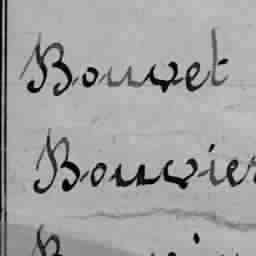 Bouvet
Bouvier